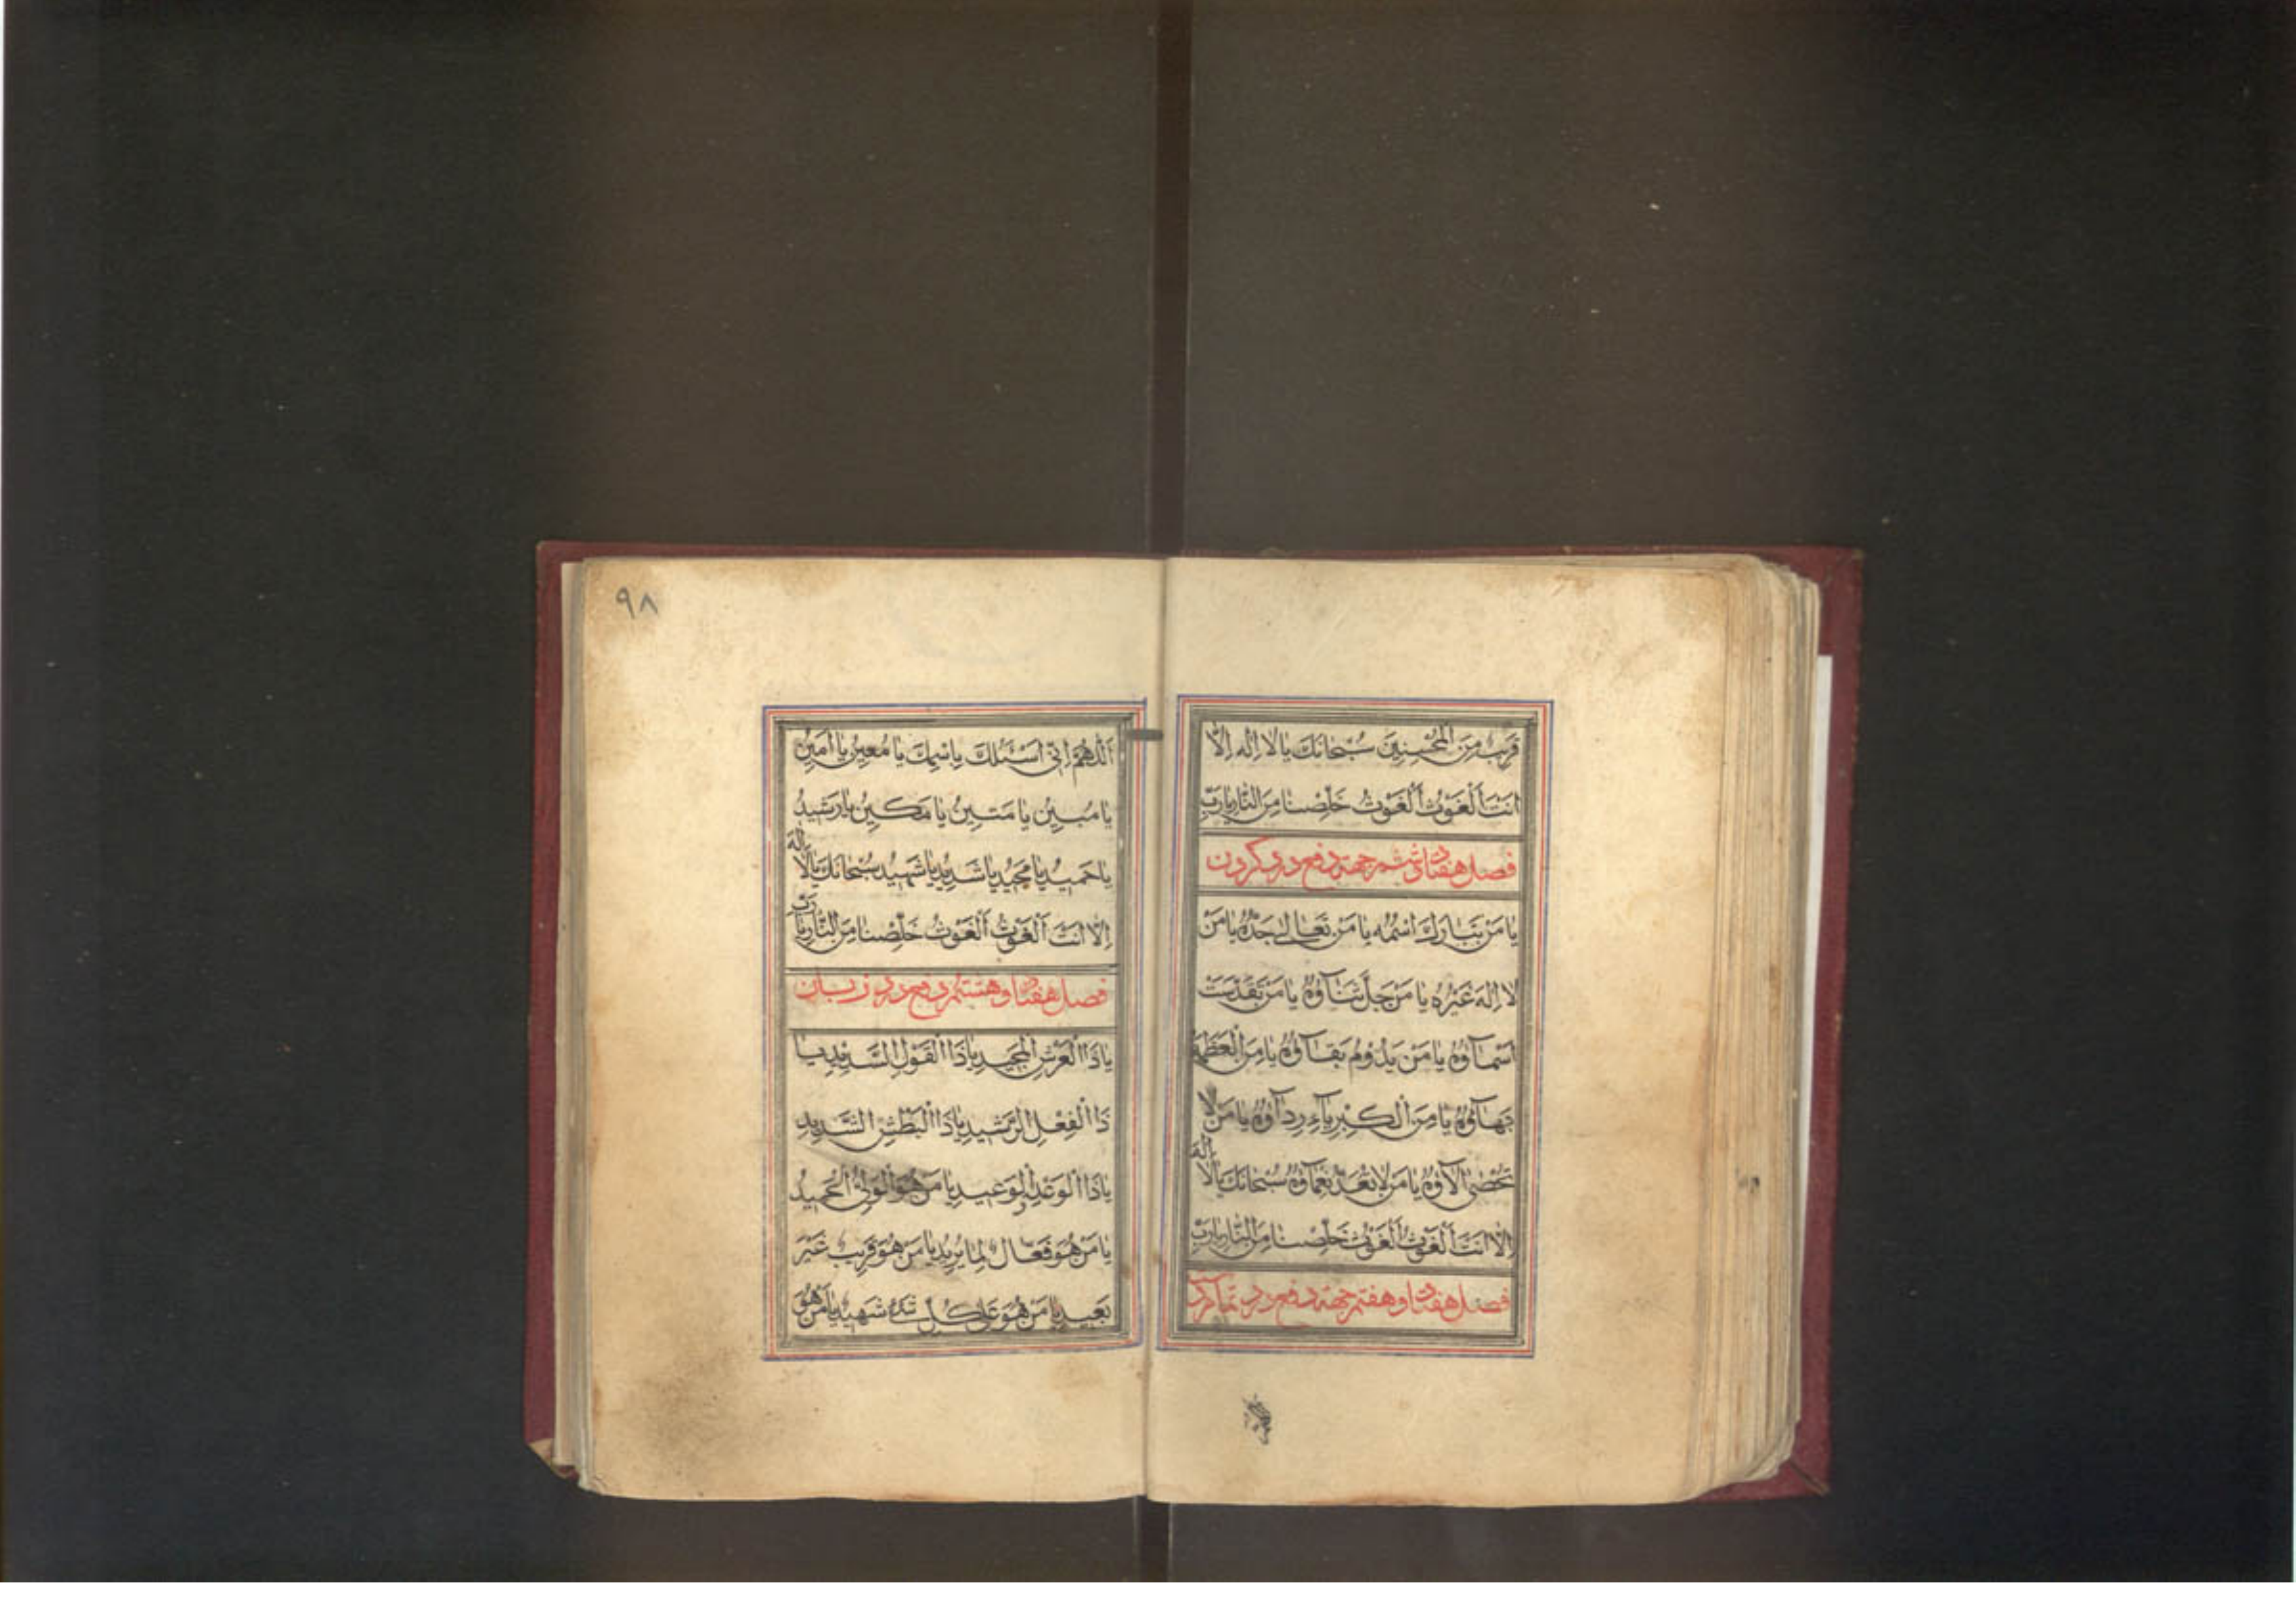 قَرِیبٌ مِنَ الْمُحْسِنِینَ سُبْحَانَکَ یَا لَا اِلٰهَ اِلَّا
اَنْتَ اَلْغَوْثَ اَلْغَوْثَ خَلِّصْنَا مِنَ النَّارِ یَا رَبِّ
فصل هفتاد و ششم جهة دفع درد گردن
یَا مَنْ تَبَارَکَ اسْمُهُ یَا مَنْ تَعَالٰی جَدُّهُ یَا مَنْ
لَا اِلٰهَ غَیْرُهُ یَا مَنْ جَلَّ ثَنَاۤؤُهُ یَا مَنْ تَقَدَّسَتْ
اَسْمَاۤؤُهُ یَا مَنْ یَدُومُ بَقَاۤؤُهُ یَا مَنِ الْعَظَمَةُ
بَهَاۤؤُهُ یَا مَنِ الْکِبْرِیَاۤءُ رِدَاۤؤُهُ یَا مَنْ لَا
تُحْصٰی اٰلَاۤؤُهُ یَا مَنْ لَا تُعَدُّ نَعْمَاۤؤُهُ سُبْحَانَکَ یَا لَا اِلٰهَ
اِلَّا اَنْتَ اَلْغَوْثَ اَلْغَوْثَ خَلِّصْنَا مِنَ النَّارِ یَا رَبِّ
فصل هفتاد و هفتم جهة دفع درد
۹۸
اَللّٰهُمَّ اِنِّی اَسْئَلُکَ بِاسْمِکَ یَا مُعِینُ یَا اَمِینُ
یَا مُبِینُ یَا مَتِینُ یَا مَکِینُ یَا رَشِیدُ
یَا حَمِیدُ یَا مَجِیدُ یَا شَدِیدُ یَا شَهِیدُ سُبْحَانَکَ یَا لَا اِلٰهَ
اِلَّا اَنْتَ اَلْغَوْثَ اَلْغَوْثَ خَلِّصْنَا مِنَ النَّارِ یَا رَبِّ
فصل هفتاد و هشتم دفع درد زبان
یَا ذَا الْعَرْشِ الْمَجِیدِ یَا ذَا الْقَوْلِ السَّدِیدِ یَا
ذَا الْفِعْلِ الرَّشِیدِ یَا ذَا الْبَطْشِ الشَّدِیدِ
یَا ذَا الْوَعْدِ وَ الْوَعِیدِ یَا مَنْ هُوَ الْوَلِیُّ الْحَمِیدُ
یَا مَنْ هُوَ فَعَّالٌ لِمَا یُرِیدُ یَا مَنْ هُوَ قَرِیبٌ غَیْرُ
بَعِیدٍ یَا مَنْ هُوَ عَلٰی کُلِّ شَیْءٍ شَهِیدٌ یَا مَنْ هُوَ